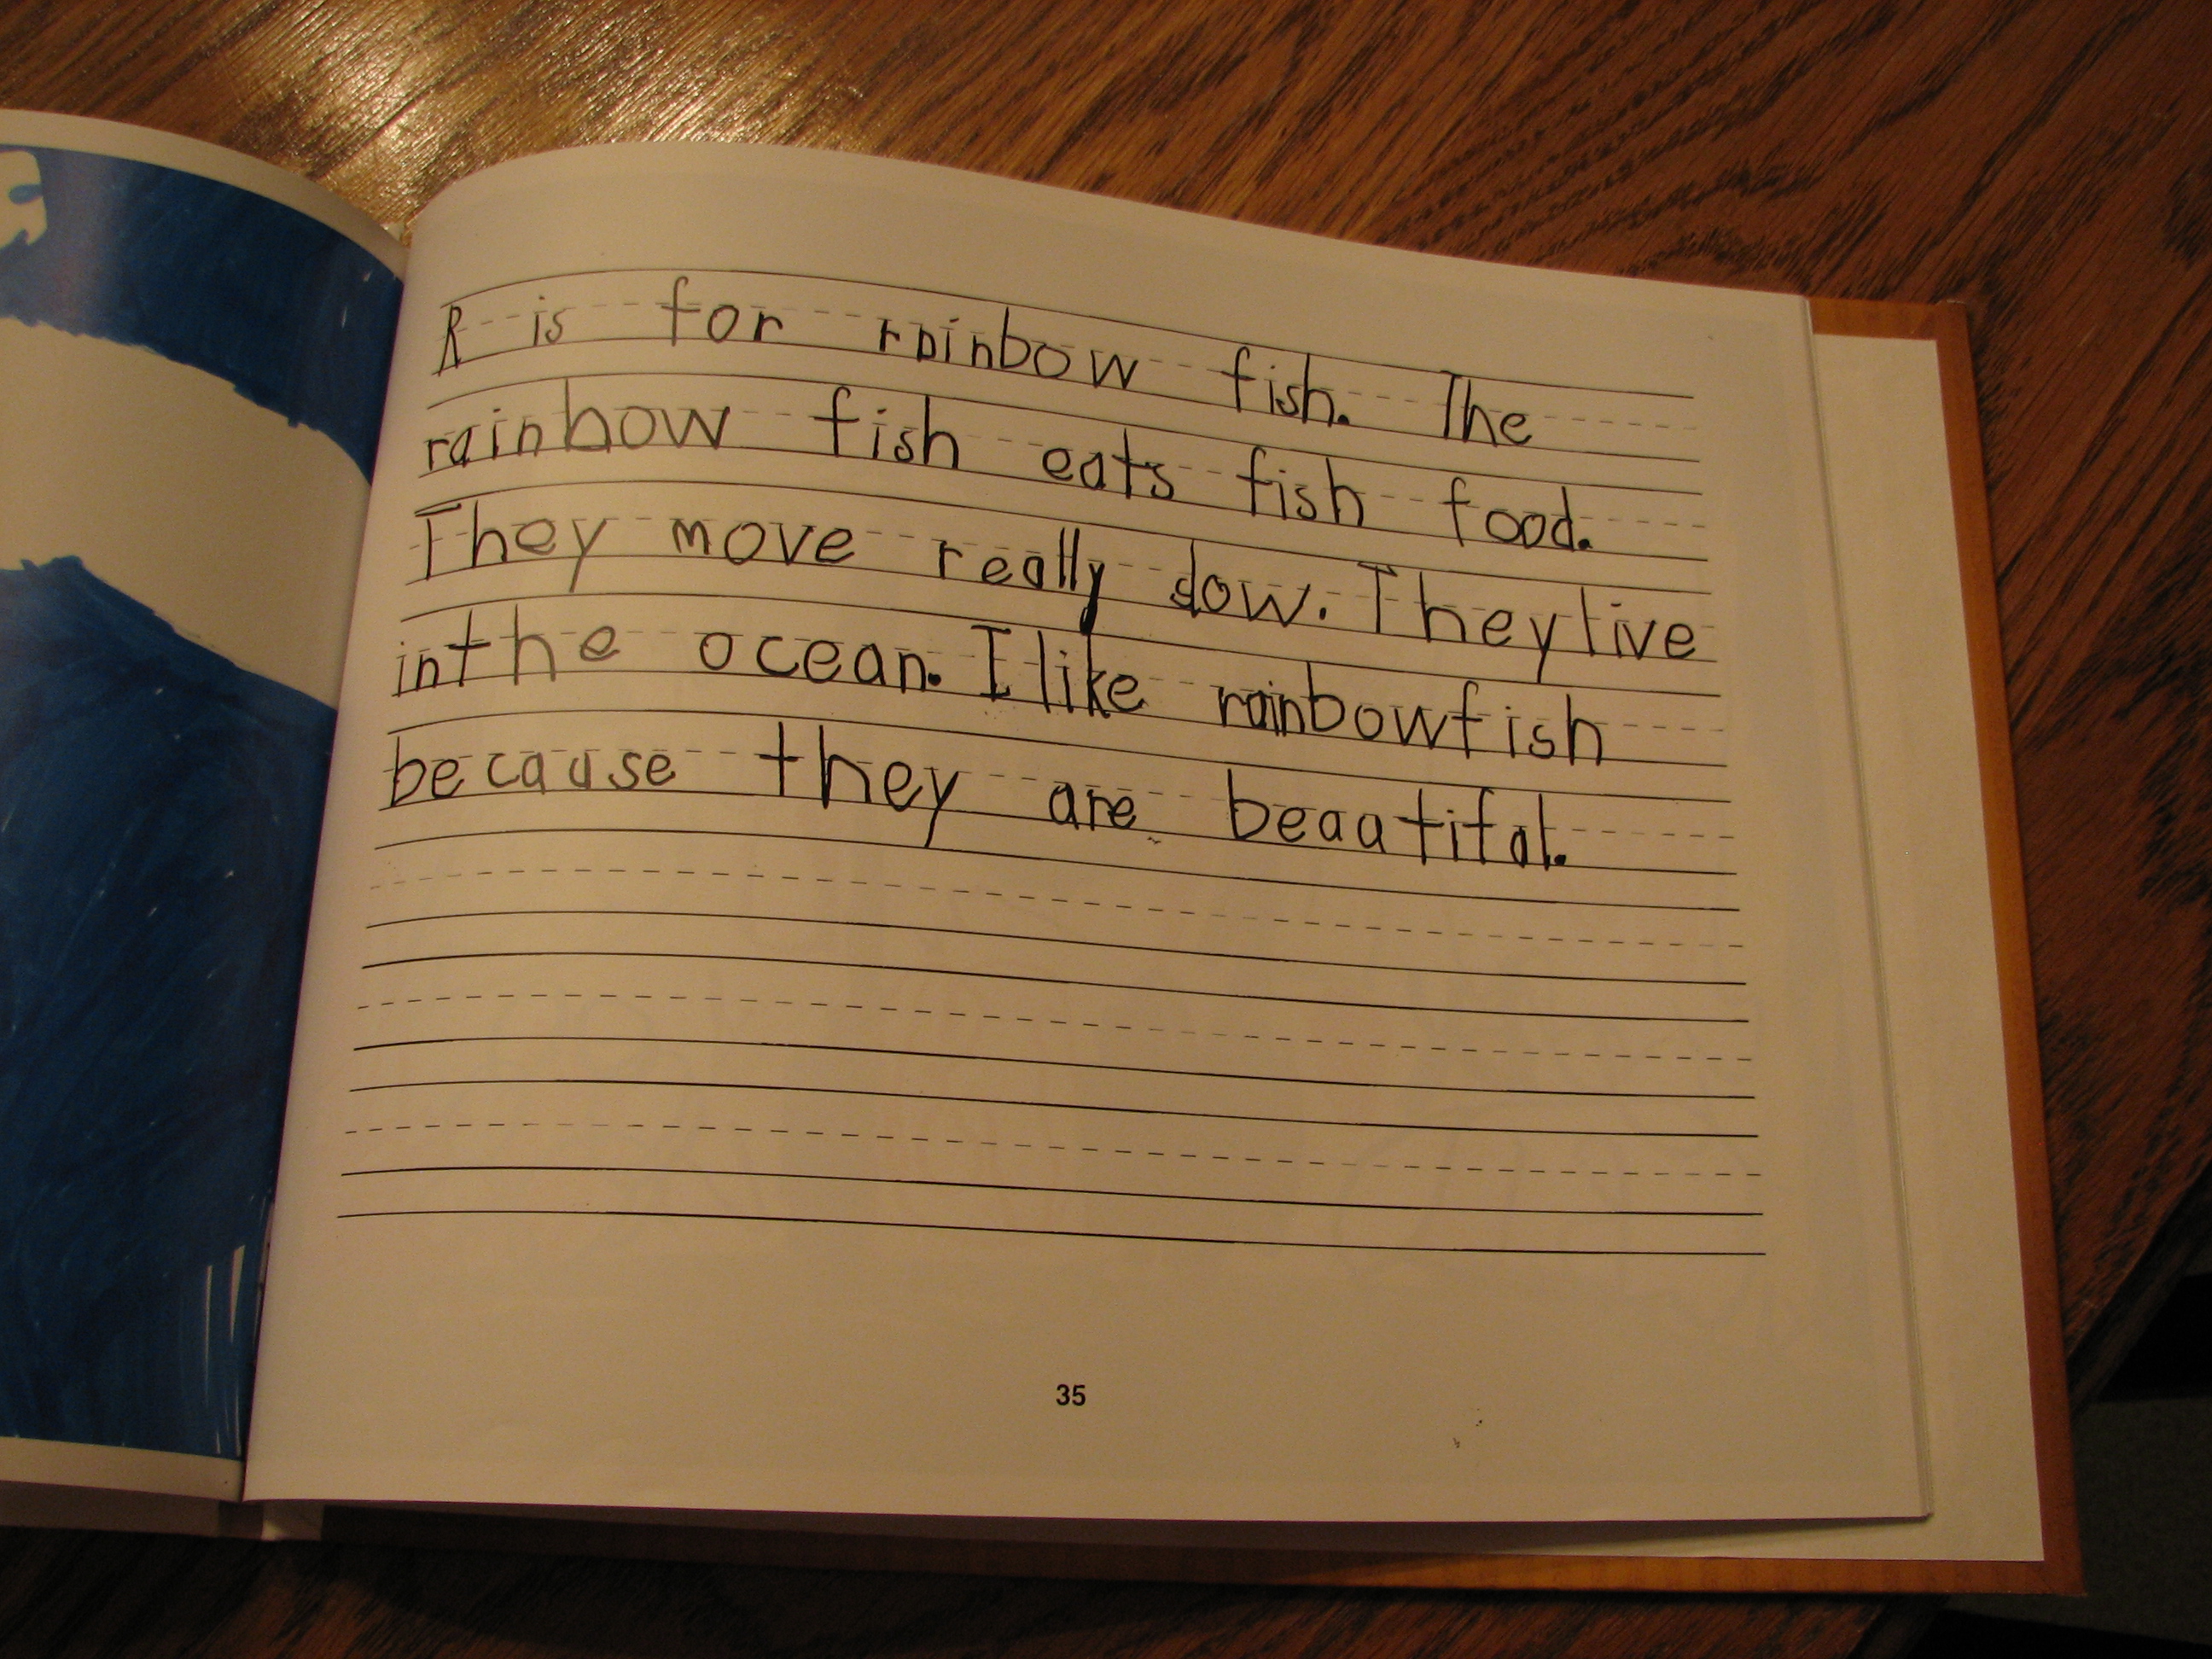 R is for rainbow fish. The
rainbow fish eats fish food.
They move really slow. They live
in the ocean. I like rainbow fish
because they are beautiful.
35